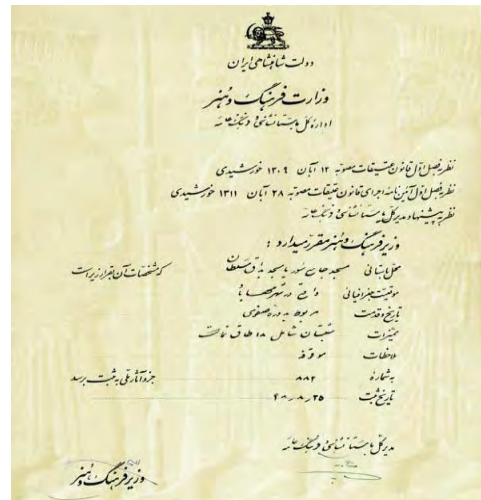 دولت شاهنشاهی ایران
وزارت فرهنگ و هنر
اداره کل باستانشناسی و فرهنگ عامه
نظر به فصل اول قانون عتیقات مصوبه ۱۲ آبان ۱۳۰۹ خورشیدی
نظر به فصل اول آئین نامه اجرای قانون عتیقات مصوبه ۲۸ آبان ۱۳۱۱ خورشیدی
نظر به پیشنهاد مدیر کل باستانشناسی و فرهنگ عامه
وزیر فرهنگ و هنر مقرر میدارد :
محل باستانی مسجد جامع یا مسجد که مشخصات آن بقرار زیر است
موقعیت جغرافیائی واقع در شهر
تاریخ و قدمت مربوط به دوره صفوی
ممیزات شبستان شامل ۱۸ طاق
ملاحظات موقوفه
به شماره ۸۸۲ جزو آثار ملی به ثبت برسد
تاریخ ثبت ۴۸٫۸٫۲۵
مدیر کل باستانشناسی و فرهنگ عامه
وزیر فرهنگ و هنر